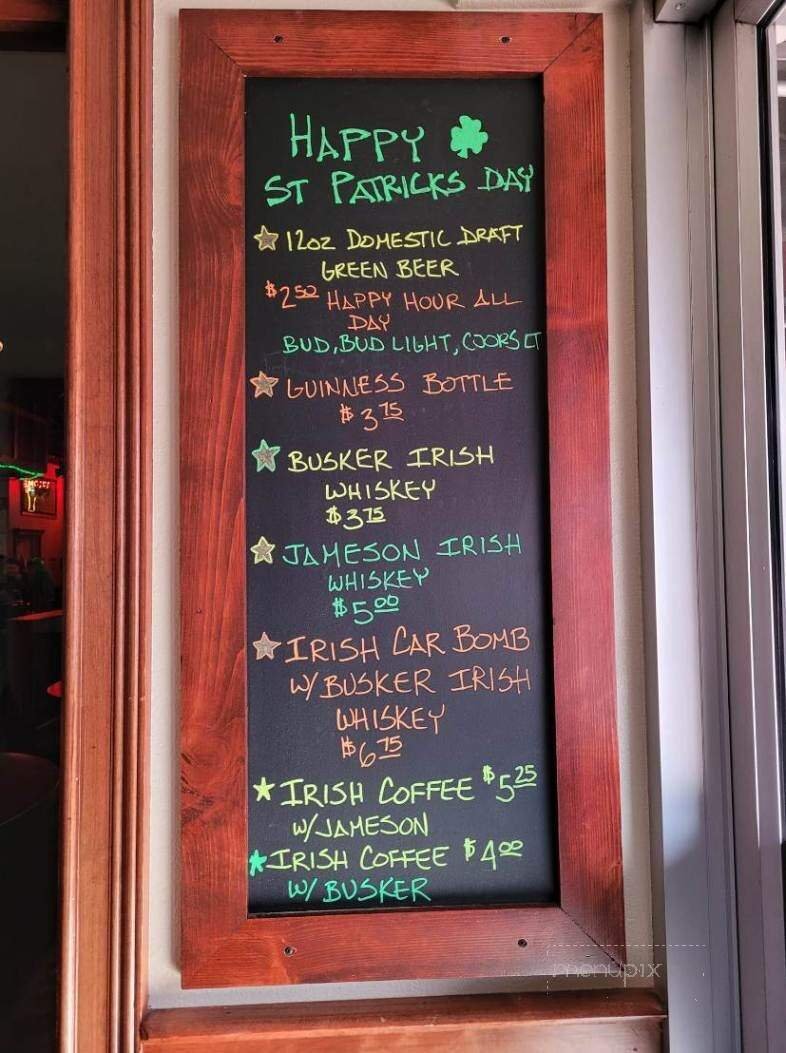 HAPPY
ST PATRICKS DAY
12oz DOMESTIC DRAFT
GREEN BEER
$2 50 HAPPY HOUR ALL
DAY
BUD, BUD LIGHT, COORS LT
GUINNESS BOTTLE
$3 75
BUSKER IRISH
WHISKEY
$3 75
JAMESON IRISH
WHISKEY
$5 00
IRISH CAR BOMB
W/ BUSKER IRISH
WHISKEY
$6 75
IRISH COFFEE $5 25
W/ JAMESON
IRISH COFFEE $4 00
W/ BUSKER
menupix